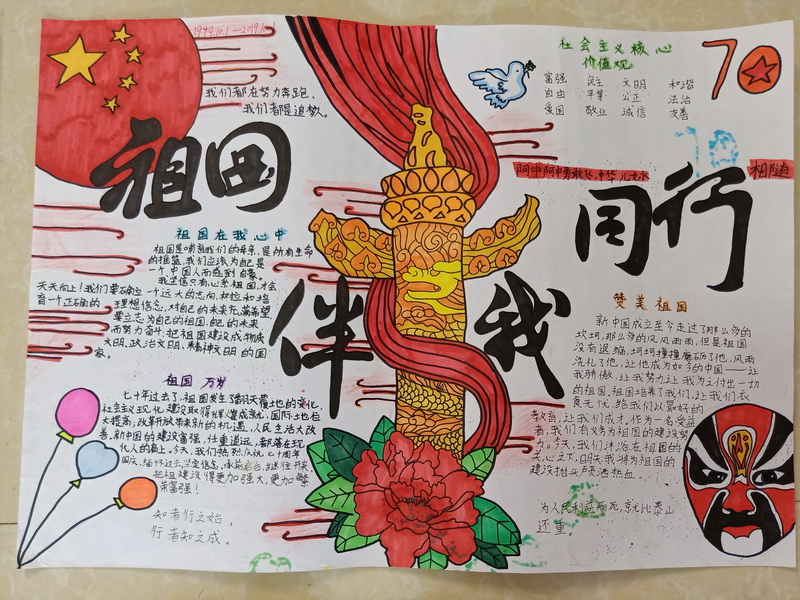 1949.10.1—2019.10.1
我们都在努力奔跑、
我们都是追梦人。
祖国
伴我
同行
社会主义核心
价值观
富强 民主 文明 和谐
自由 平等 公正 法治
爱国 敬业 诚信 友善
70
阿中阿中勇敢飞,中华儿女永
相随
祖国在我心中
祖国是哺育我们的母亲,是所有生命
的摇篮,我们应该为自己是
一个中国人而感到自豪。
我坚信只有心系祖国,才会
天天向上!我们要确立一个远大的志向,树立和培
育一个正确的理想信念,对自己的未来充满希望
要立志为自己的祖国,自己的未来
而努力奋斗,把祖国建设成物质
文明、政治文明、精神文明的国
家。
祖国万岁
七十年过去了,祖国发生了翻天覆地的变化,
社会主义现化建设取得辉煌成就,国际地位
大提高,改革开放带来新的机遇,人民生活大改
善,新中国的建设富强,任重道远,都落在现
化人的肩上。今天,我们热烈庆祝七十周年
国庆,缅怀过去,坚定信念,承前启后,继往开来,
把祖国建设得更加强大,更加繁
荣富强!
知者行之始,
行者知之成。
赞美祖国
新中国成立至今走过了那么多的
坎坷,那么多的风风雨雨,但是祖国
没有退缩,坷坷撞撞磨砺了他,风雨
洗礼了他,让他成为如今的中国——让
我骄傲,让我努力,让我为之付出一切
的祖国,祖国培养了我们,让我们衣
食无忧,给我们以最好的
教育,让我们成才,作为一名受益
者,我们有义务为祖国的建设努
力。今天,我们沐浴在祖国的
关心之下,明天我将为祖国的
建设抛头颅洒热血。
为人民利益而死,就比泰山
还重。